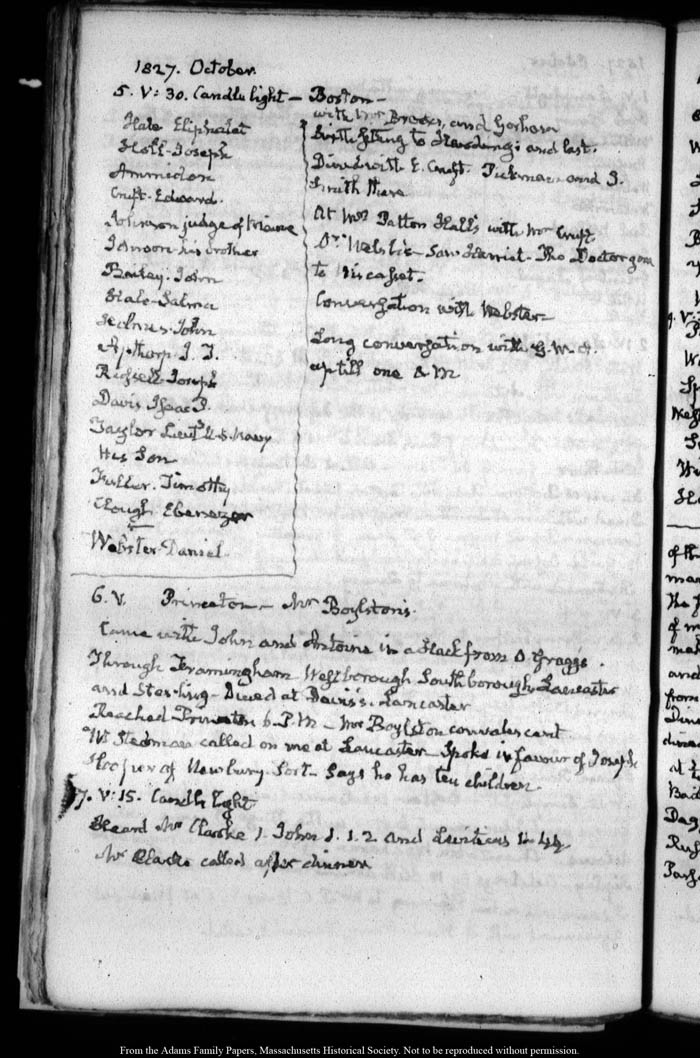 1827. October.
5. V: 30. Candle light – Boston –
Hale Eliphalet
Holt Joseph
Ammidon
Cruft. Edward.
Johnson judge of Maine
Johnson his brother
Bailey. John
Hale. Salma
Holmes. John
Apthorp J. T.
Russell Joseph
Davis Isaac P.
Taylor Lieut. U.S. Navy
His Son
Fuller. Timothy
Clough. Ebenezer
Webster. Daniel.
with Mr Brooks, and Gorham
Sitting to Harding: and last.
Dined with E. Cruft. Pickman and J.
Smith there
At Mrs Patton Hall's with Mr Cruft.
Dr Welsh's – Saw Harriet. The Doctor gone
to Wiscasset.
Conversation with Webster
Long conversation with G.W.A.
up till one A M
6. V. Princeton – Mr Boylston's.
Came with John and Antoine in a Hack from D Graggs.
Through Framingham Westborough Southborough Lancaster
and Sterling – Dined at Davis's. Lancaster
Reached Princeton 6. P.M – Mr Boylston convalescent
Mr Stedman called on me at Lancaster – Spoke in favour of Joseph
Hooper of Newbury-Port – Says he has ten children.
7. V: 15. Candle light
Heard Mr Clarke 1. John 1. 1. 2 and 11. 44
Mr Clarke called after dinner
of th
and
from
From the Adams Family Papers, Massachusetts Historical Society. Not to be reproduced without permission.